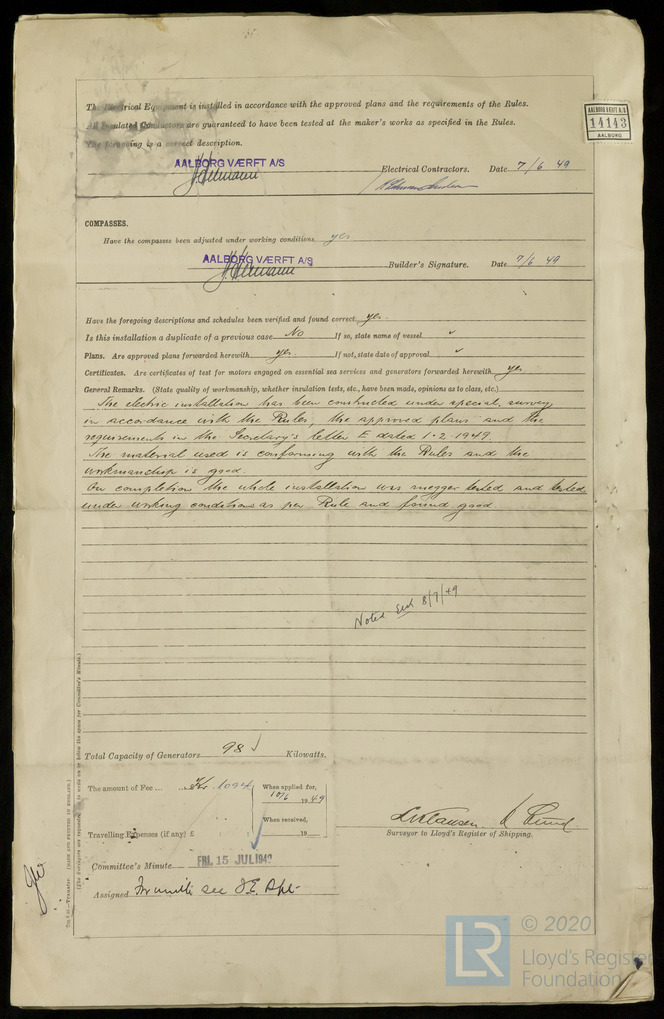 The Electrical Equipment is installed in accordance with the approved plans and the requirements of the Rules.
All Insulated Conductors are guaranteed to have been tested at the maker's works as specified in the Rules.
The foregoing is a correct description.
AALBORG VÆRFT A/S
14143
AALBORG
AALBORG VÆRFT A/S
Electrical Contractors. Date 7/6 49
COMPASSES.
Have the compasses been adjusted under working conditions yes
AALBORG VÆRFT A/S
Builder's Signature. Date 7/6 49
Have the foregoing descriptions and schedules been verified and found correct yes.
Is this installation a duplicate of a previous case No If so, state name of vessel ✓
Plans. Are approved plans forwarded herewith yes. If not, state date of approval ✓
Certificates. Are certificates of test for motors engaged on essential sea services and generators forwarded herewith yes.
General Remarks. (State quality of workmanship, whether insulation tests, etc., have been made, opinions as to class, etc.)
The electric installation has been constructed under special survey
in accordance with the Rules, the approved plans and the
requirements in the Secretary's letter E dated 1-2-1949.
The material used is conforming with the Rules and the
workmanship is good.
On completion the whole installation was megger tested and tested
under working conditions as per Rule and found good
Noted 8/7/49
Total Capacity of Generators 98 ✓ Kilowatts.
The amount of Fee ... Kr. 1094 When applied for,
10/6 1949
When received,
Travelling Expenses (if any) £ 19
Surveyor to Lloyd's Register of Shipping.
Committee's Minute FRI. 15 JUL 1949
Assigned see F.E. Rpt.
(MADE AND PRINTED IN ENGLAND.)
(The Surveyors are requested not to write on or below the space for Committee's Minute.)
LR
© 2020
Lloyd's Register
Foundation